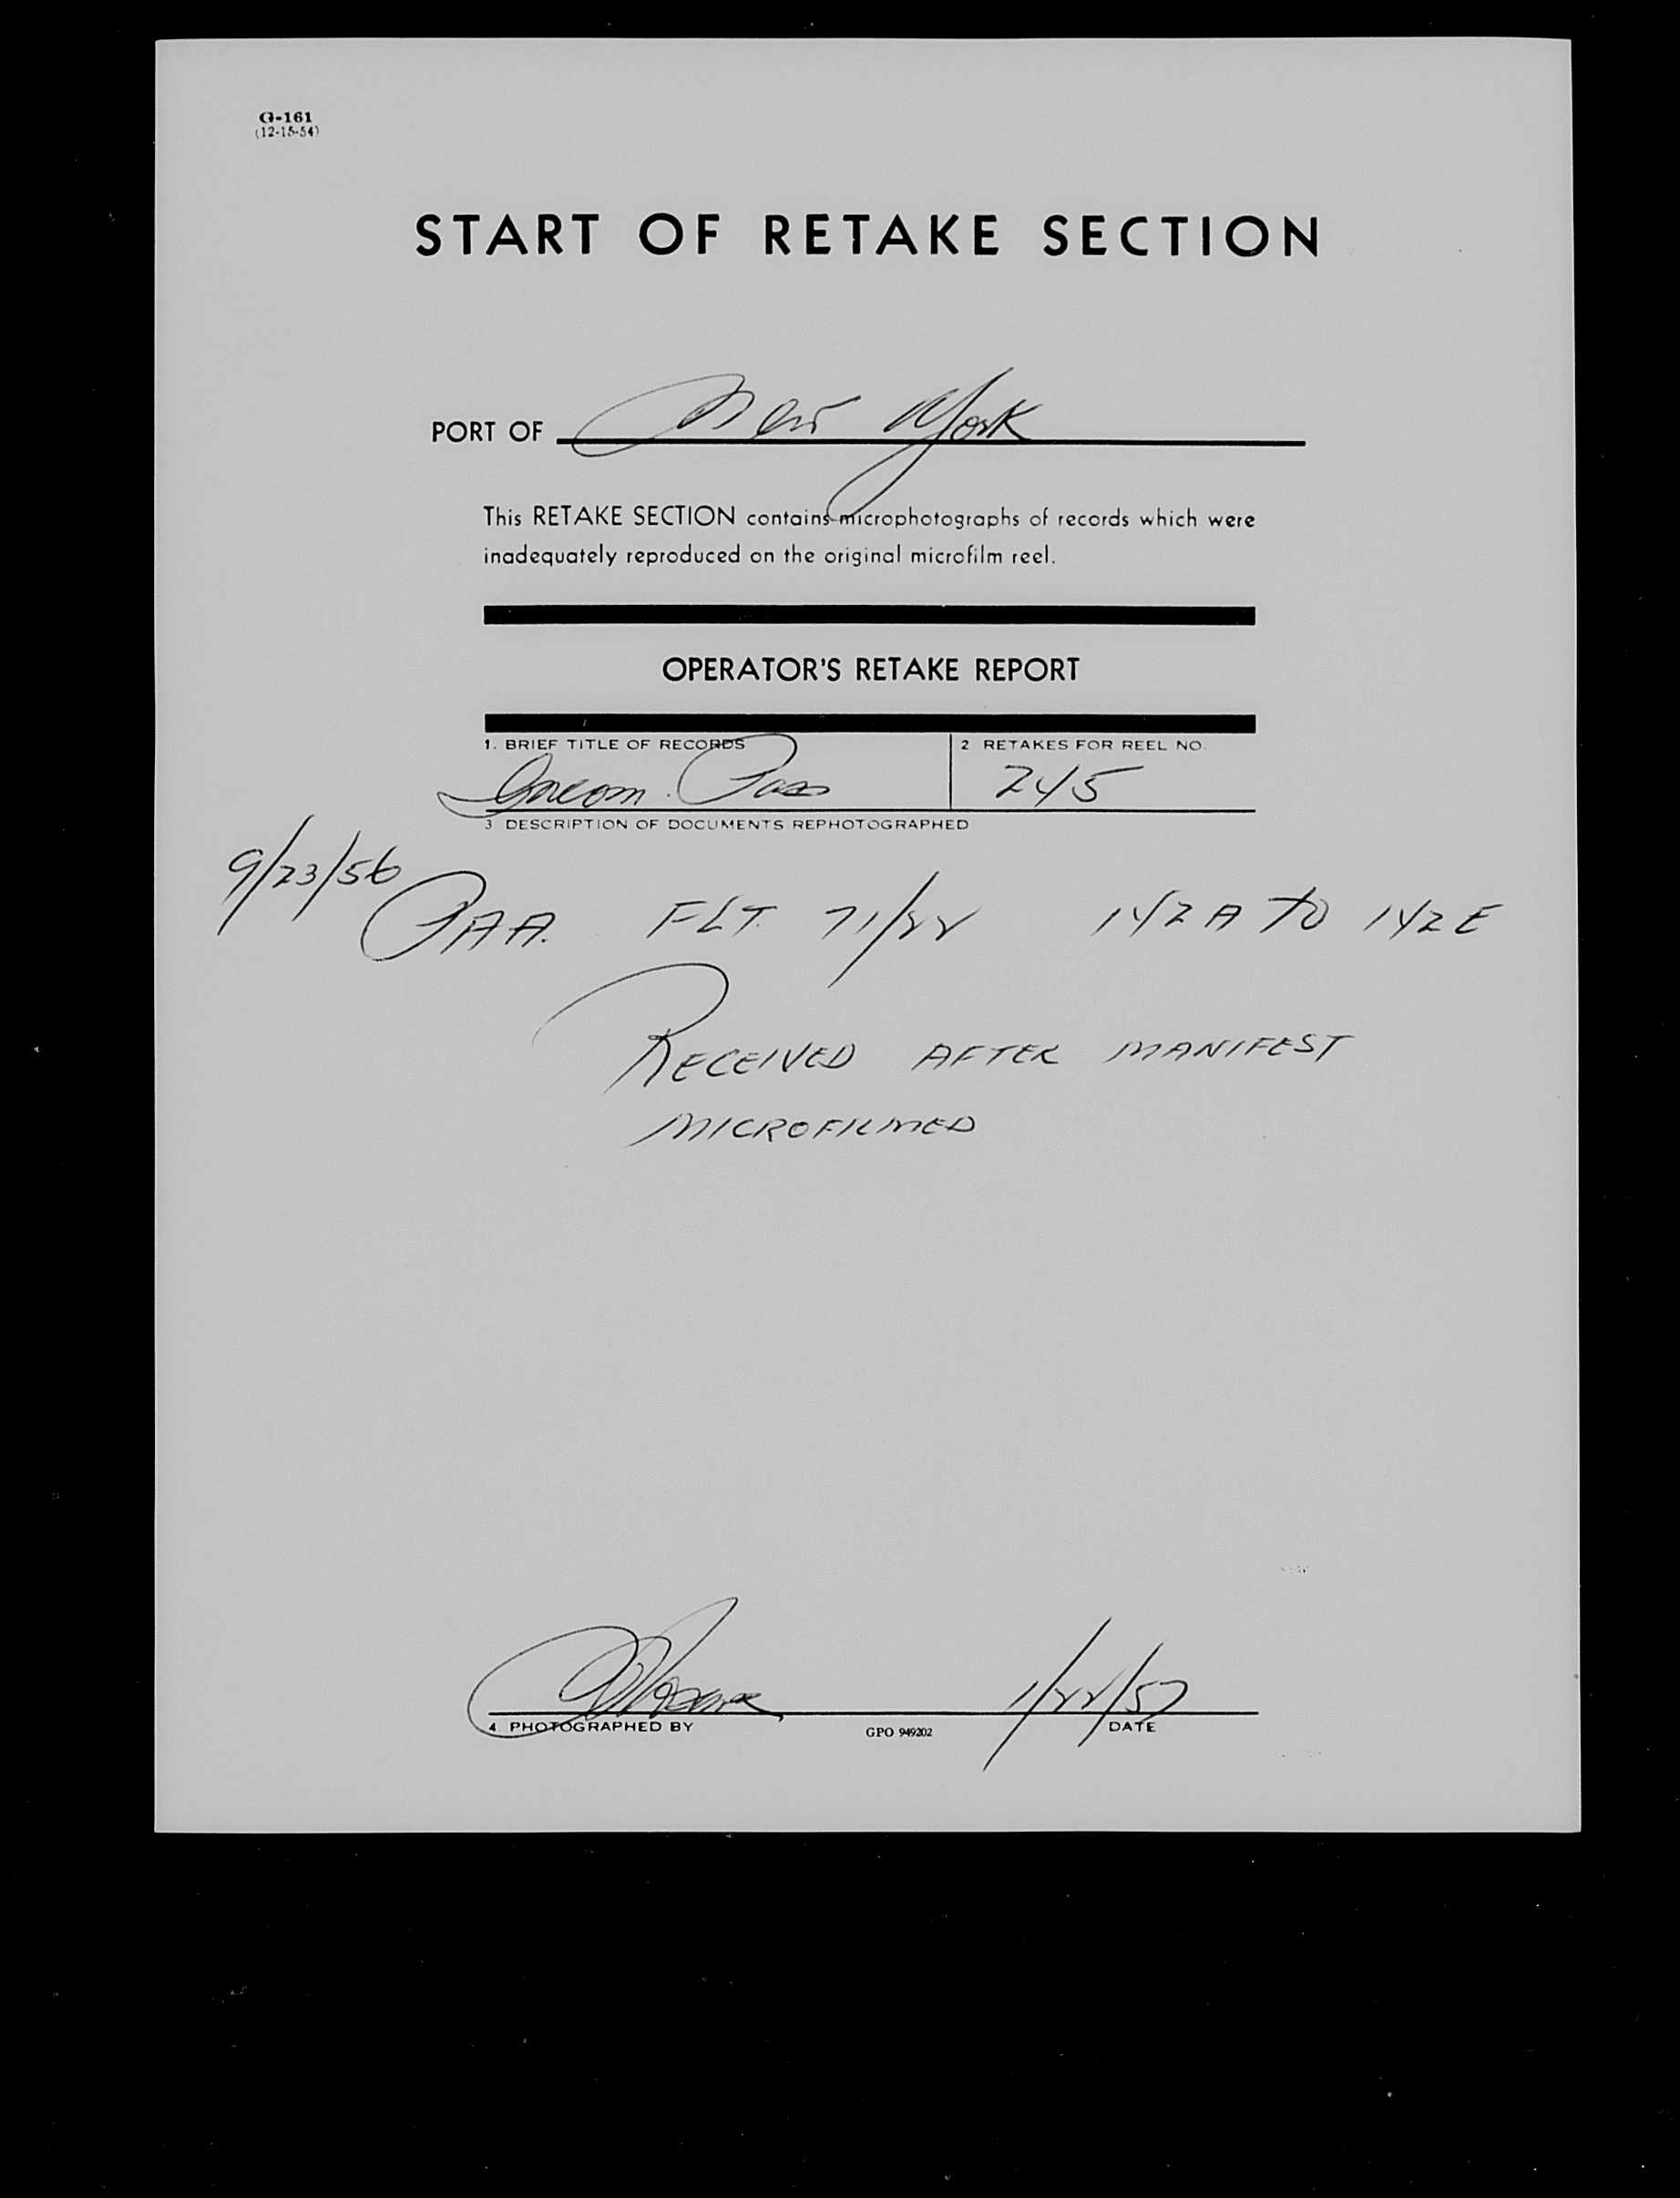 G-161
(12-15-54)
START OF RETAKE SECTION
PORT OF New York
This RETAKE SECTION contains microphotographs of records which were
inadequately reproduced on the original microfilm reel.
OPERATOR'S RETAKE REPORT
1. BRIEF TITLE OF RECORDS
2 RETAKES FOR REEL NO.
Incom. Pass
245
3 DESCRIPTION OF DOCUMENTS REPHOTOGRAPHED
9/23/56
PAA. FLT. 71/22 142A TO 142E
RECEIVED AFTER MANIFEST
MICROFILMED
1/22/57
4 PHOTOGRAPHED BY
GPO 949202
DATE